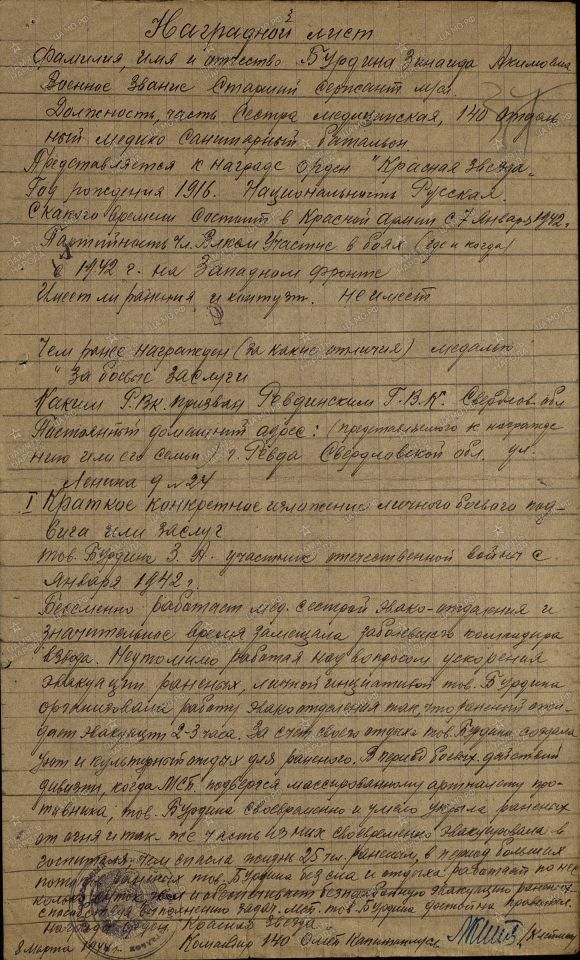 Наградной лист
Фамилия, имя и отчество Бурдина Зинаида Акимовна
Военное звание Старший сержант м/с.
Должность, часть Сестра медицинская, 140 отдель
ный медико санитарный батальон.
Представляется к награде орден "Красная звезда"
Год рождения 1916. Национальность Русская.
С какого времени состоит в Красной армии с 7 Января 1942г
Партийность Чл. Влксм Участие в боях (где и когда)
с 1942 г. на Западном фронте
Имеет ли ранения и контуз. не имеет
Чем ранее награжден (за какие отличия) медалью
"За боевые заслуги
Каким Р.Вк. призван Ревдинским Г.В.К. Свердлов обл
Постоянный домашний адрес: (представляемого к награжде
нию или его семьи) г. Ревда Свердловской обл. ул.
Ленина д №24
I Краткое конкретное изложение личного боевого под-
вига или заслуг
тов. Бурдина З. А. участник отечественной войны с
Января 1942 г.
Бессменно работает мед. сестрой эвако-отделения и
значительное время замещала заболевшего командира
взвода. Неутомимо работая над вопросом ускорения
эвакуации раненых, личной инициативой тов. Бурдина
организовала работу эвакоотделения так, что раненый ожи-
дает эвакуации 2-3 часа. За счет своего отдыха тов. Бурдина создала
уют и культурный отдых для раненого. В период боевых действий
дивизии, когда МСБ подвергся массированному артналету про-
тивника, тов. Бурдина своевременно и умело укрыла раненых
от огня и так-же часть из них своевременно эвакуировала в
госпиталя, чем спасла жизнь 25 чел. раненым, в период больших
потоков раненых тов. Бурдина без сна и отдыха работает по нес
кольку суток и обеспечивает бесперебойную эвакуацию раненых
способствуя выполнению задач МСБ. тов. Бурдина достойна правител.
награды орден Красная звезда.
8 марта 1944 г. Командир 140 ОМСБ Капитан м/с